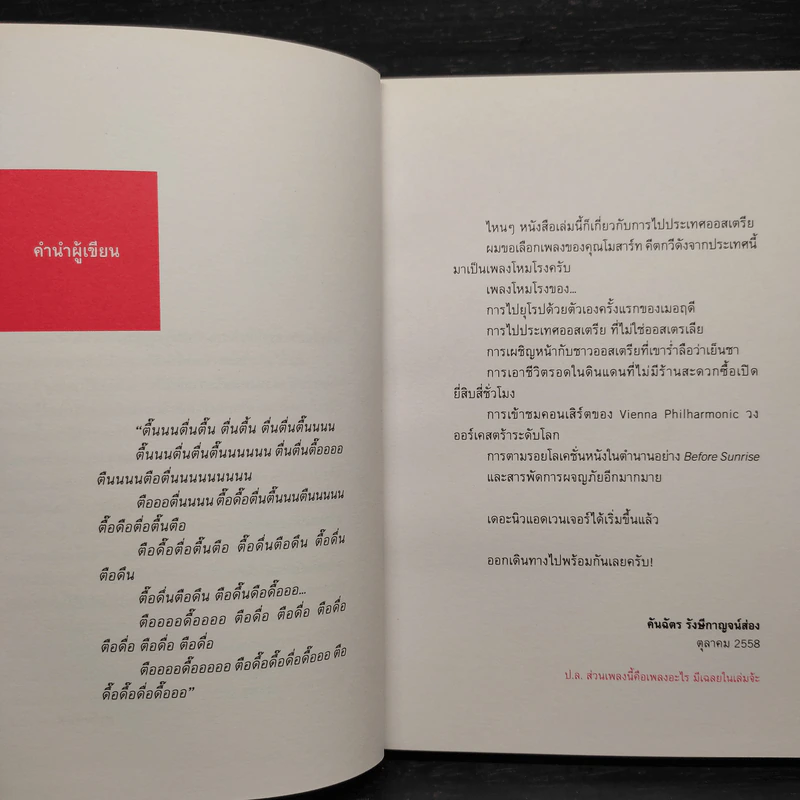 คำนำผู้เขียน
“ตื๊นนนตื่นตื๊น ตื่นตื้น ตื่นตื่นตื๊นนนน
ตื๊นนนตื่นตื่นตื๊นนนนนน ตื่นตื่นตื๊ออออ
ตืนนนนตือตื่นนนนนนนนน
ตือออตื่นนนน ตื๊อดื๊อตื่นตื๊นนนตืนนนนน
ตื๊อดือตื่อตื๊นตือ
ตือดื๊อตื่อตื๊นตือ ตื๊อดื่นตือดืน ตื๊อดื่น
ตือดืน
ตื๊อดื่นตือดืน ตือดื๊นดือดื๊อออ...
ตือออออดื๊อออออ ตือดื่อ ตือดื่อ ตือดื่อ
ตือดื่อ ตือดื่อ ตือดื่อ
ตืออออดื๊อออออ ตือดื๊อดื๊อดื่อดื๊อออ ตือ
ดื๊อดื๊อดื่อดื๊อออ”
ไหนๆ หนังสือเล่มนี้ก็เกี่ยวกับการไปประเทศออสเตรีย
ผมขอเลือกเพลงของคุณโมสาร์ท คีตกวีดังจากประเทศนี้
มาเป็นเพลงโหมโรงครับ
เพลงโหมโรงของ...
การไปยุโรปด้วยตัวเองครั้งแรกของเมอฤดี
การไปประเทศออสเตรีย ที่ไม่ใช่ออสเตรเลีย
การเผชิญหน้ากับชาวออสเตรียที่เขาร่ำลือว่าเย็นชา
การเอาชีวิตรอดในดินแดนที่ไม่มีร้านสะดวกซื้อเปิด
ยี่สิบสี่ชั่วโมง
การเข้าชมคอนเสิร์ตของ Vienna Philharmonic วง
ออร์เคสตร้าระดับโลก
การตามรอยโลเคชั่นหนังในตำนานอย่าง Before Sunrise
และสารพัดการผจญภัยอีกมากมาย
เดอะนิวแอดเวนเจอร์ได้เริ่มขึ้นแล้ว
ออกเดินทางไปพร้อมกันเลยครับ!
คันฉัตร รังษีกาญจน์ส่อง
ตุลาคม 2558
ป.ล. ส่วนเพลงนี้คือเพลงอะไร มีเฉลยในเล่มจ้ะ